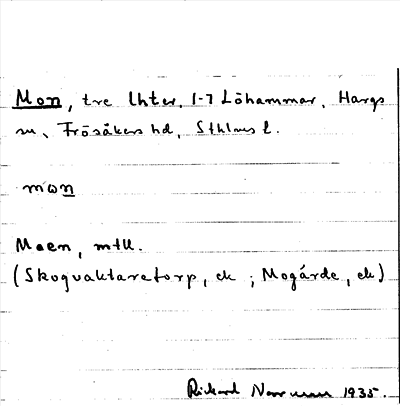 Mon, tre lhter, 1-7 Löhammar, Hargs
sn, Frösåkers hd, Sthlms l.
mon
Moen, mtll.
(Skogvaktaretorp, ek ; Mogärde, ek)
Rickard Norrman 1935.